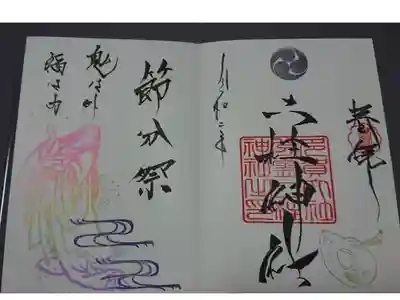 奉拝
六柱神社
令和二年
節分祭
鬼は外
福は内